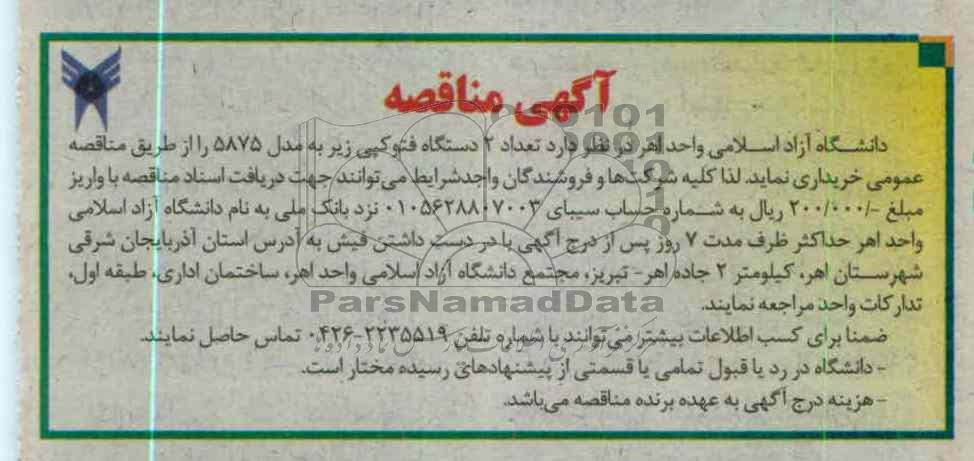 آگهی مناقصه
دانشگاه آزاد اسلامی واحد اهر در نظر دارد تعداد ۲ دستگاه فتوکپی زیر به مدل ۵۸۷۵ را از طریق مناقصه
عمومی خریداری نماید. لذا کلیه شرکت‌ها و فروشندگان واجدشرایط می‌توانند جهت دریافت اسناد مناقصه با واریز
مبلغ -/۲۰۰/۰۰۰ ریال به شماره حساب سیبای ۰۱۰۵۶۲۸۸۰۷۰۰۳ نزد بانک ملی به نام دانشگاه آزاد اسلامی
واحد اهر حداکثر ظرف مدت ۷ روز پس از درج آگهی با در دست داشتن فیش به آدرس استان آذربایجان شرقی
شهرستان اهر، کیلومتر ۲ جاده اهر- تبریز، مجتمع دانشگاه آزاد اسلامی واحد اهر، ساختمان اداری، طبقه اول،
تدارکات واحد مراجعه نمایند.
ParsNamadData
ضمنا برای کسب اطلاعات پیشتر می‌توانند با شماره تلفن ۲۲۳۵۵۱۹-۰۴۲۶ تماس حاصل نمایند.
- دانشگاه در رد یا قبول تمامی یا قسمتی از پیشنهادهای رسیده مختار است.
- هزینه درج آگهی به عهده برنده مناقصه می‌باشد.